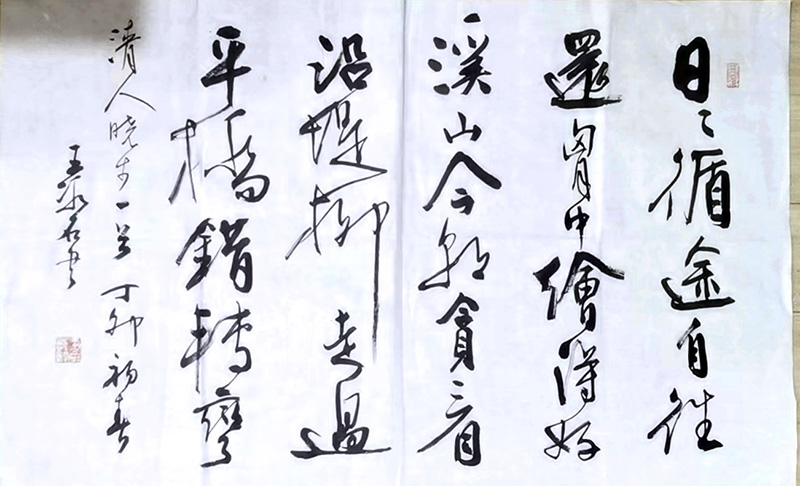 日〻循途自往
還胷中繪得好
溪山今朝貪看
沿堤柳走過
平橋錯轉彎
清人晓步一首 丁卯初春
王石书